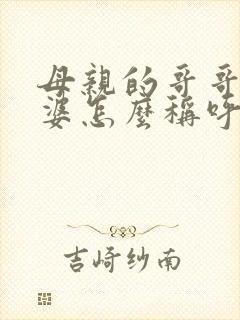 母親的哥哥
婆怎麼稱呼
吉崎纱南